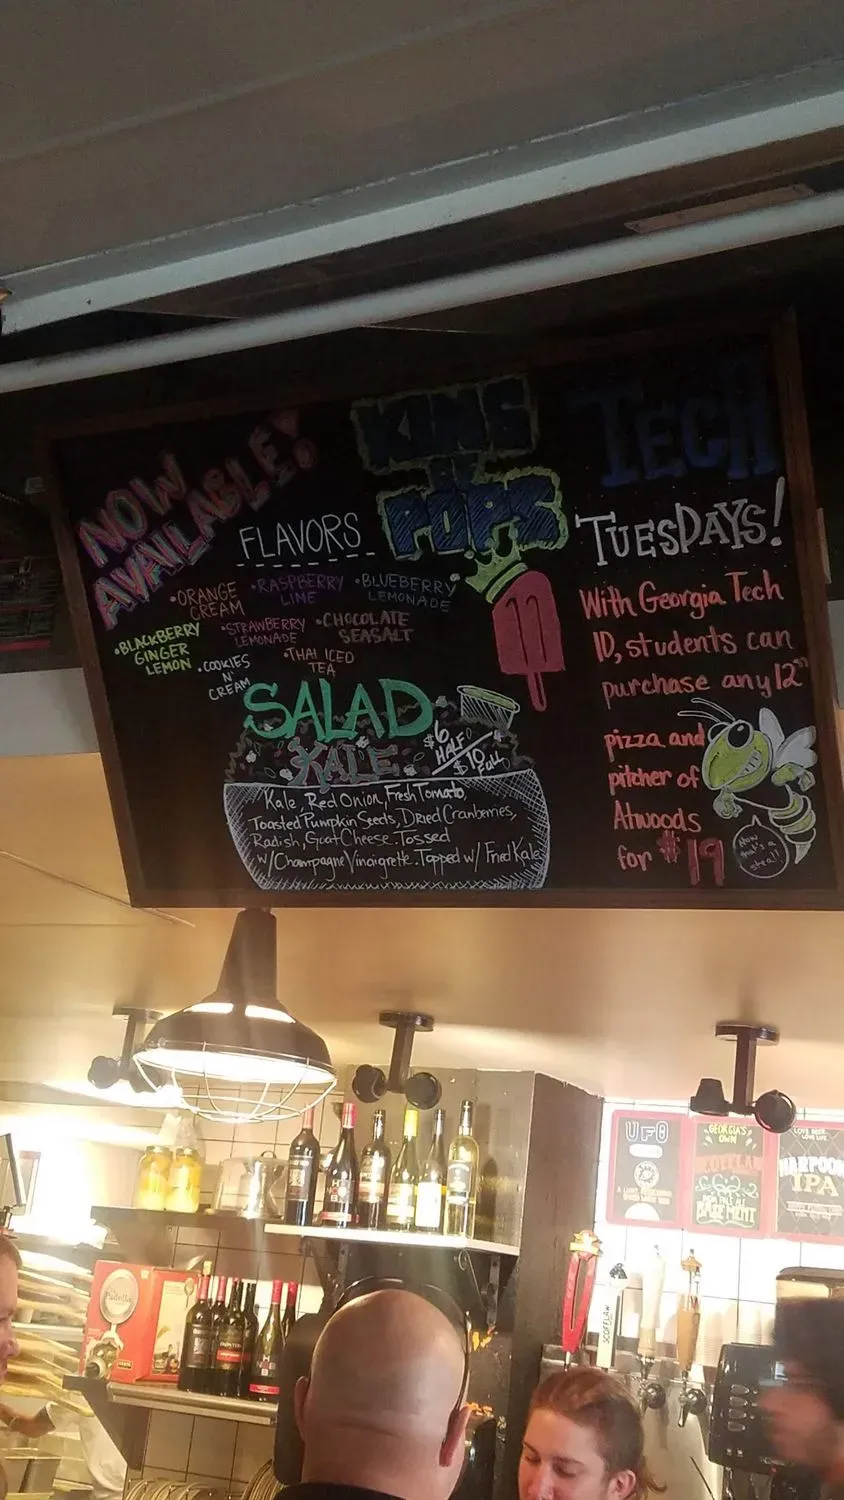 NOW
AVAILABLE!
KING
OF
POPS
FLAVORS
•ORANGE
CREAM
•RASPBERRY
LIME
•BLUEBERRY
LEMONADE
•BLACKBERRY
GINGER
LEMON
•STRAWBERRY
LEMONADE
•CHOCOLATE
SEASALT
•COOKIES
N'
CREAM
•THAI ICED
TEA
SALAD
KALE
$6
HALF
$10
FULL
Kale, Red Onion, Fresh Tomato
Toasted Pumpkin Seeds, Dried Cranberries,
Radish, Goat Cheese. Tossed
w/ Champagne Vinaigrette. Topped w/ Fried Kale
TECH
TUESDAYS!
With Georgia Tech
ID, students can
purchase any 12"
pizza and
pitcher of
Atwoods
for $19
Now
that's a
steal!
UFO
GEORGIA'S
OWN
SCOFFLAW
BASEMENT
LOVE BEER
LOVE LIFE
HARPOON
IPA
SCOFFLAW